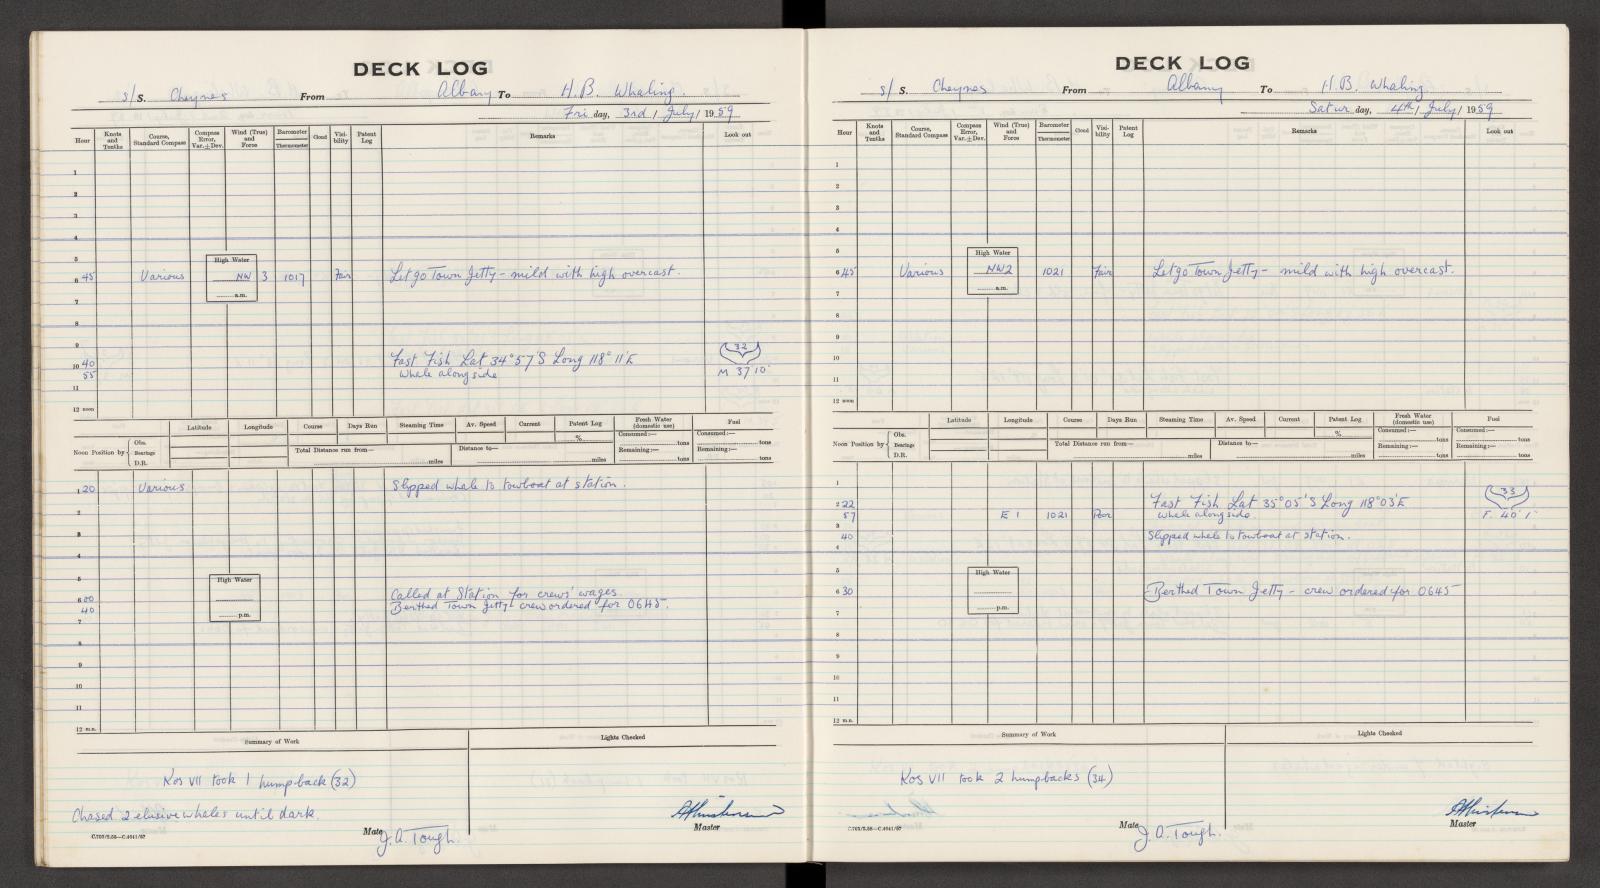 DECK LOG
s/ S. Cheynes From Albany To H.B. Whaling.
Fri day, 3rd / July / 1959
Hour Knots and Tenths Course, Standard Compass Compass Error, Var. ± Dev. Wind (True) and Force Barometer Thermometer Cloud Visibility Patent Log Remarks Look out
1
2
3
4
5
High Water
6 45 Various NW 3 1017 Fair Let go Town Jetty - mild with high overcast.
a.m.
7
8
9
10 40 Fast Fish Lat 34°57'S Long 118° 11'E 32
55 Whale alongside M 37'10"
11
12 noon
Latitude Longitude Course Days Run Steaming Time Av. Speed Current Patent Log Fresh Water (domestic use) Fuel
% Consumed:— tons Consumed:— tons
Noon Position by Obs. Bearings D.R. Total Distance run from— miles Distance to— miles Remaining:— tons Remaining:— tons
1 20 Various Slipped whale to towboat at station.
2
3
4
5
High Water
6 00 Called at Station for crews' wages.
40 Berthed Town Jetty - crew ordered for 0645.
p.m.
7
8
9
10
11
12 m.n.
Summary of Work Lights Checked
Kos VII took 1 humpback (32)
Chased 2 elusive whales until dark.
C.703/5.58—C.4641/57
Mate J.A. Tough.
Master
DECK LOG
s/ S. Cheynes From Albany To H.B. Whaling
Satur day, 4th / July / 1959
Hour Knots and Tenths Course, Standard Compass Compass Error, Var. ± Dev. Wind (True) and Force Barometer Thermometer Cloud Visibility Patent Log Remarks Look out
1
2
3
4
5
High Water
6 45 Various NW2 1021 Fair Let go Town Jetty - mild with high overcast.
a.m.
7
8
9
10
11
12 noon
Latitude Longitude Course Days Run Steaming Time Av. Speed Current Patent Log Fresh Water (domestic use) Fuel
% Consumed:— tons Consumed:— tons
Noon Position by Obs. Bearings D.R. Total Distance run from— miles Distance to— miles Remaining:— tons Remaining:— tons
1
2 22 Fast Fish Lat 35°05'S Long 118°03'E 33
57 E 1 1021 Poor Whale alongside. F. 40' 1"
3
40 Slipped whale to towboat at station.
4
5
High Water
6 30 Berthed Town Jetty - crew ordered for 0645
p.m.
7
8
9
10
11
12 m.n.
Summary of Work Lights Checked
Kos VII took 2 humpbacks (34)
C.703/5.58—C.4641/57
Mate J.A. Tough.
Master